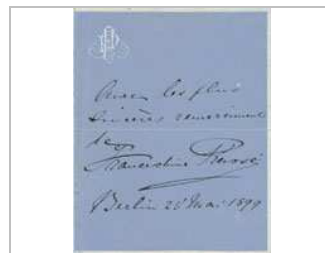 Avec les plus
sincères remerciments
de
Franceschina Prevosti
Berlin 20 Mai 1899